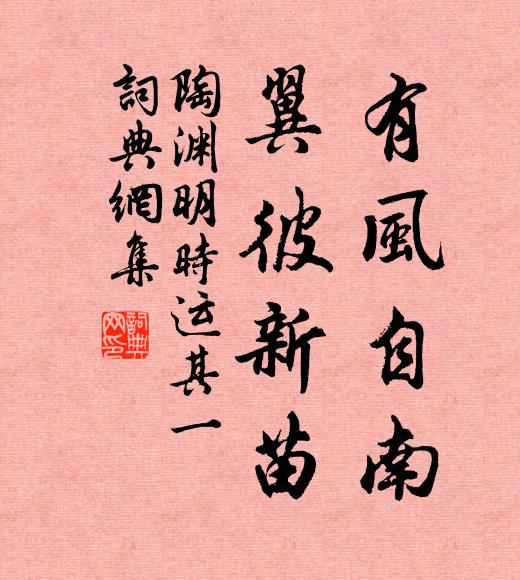 有風自南
翼彼新苗
陶渊明時运其一
詞典網集
詞典
网印